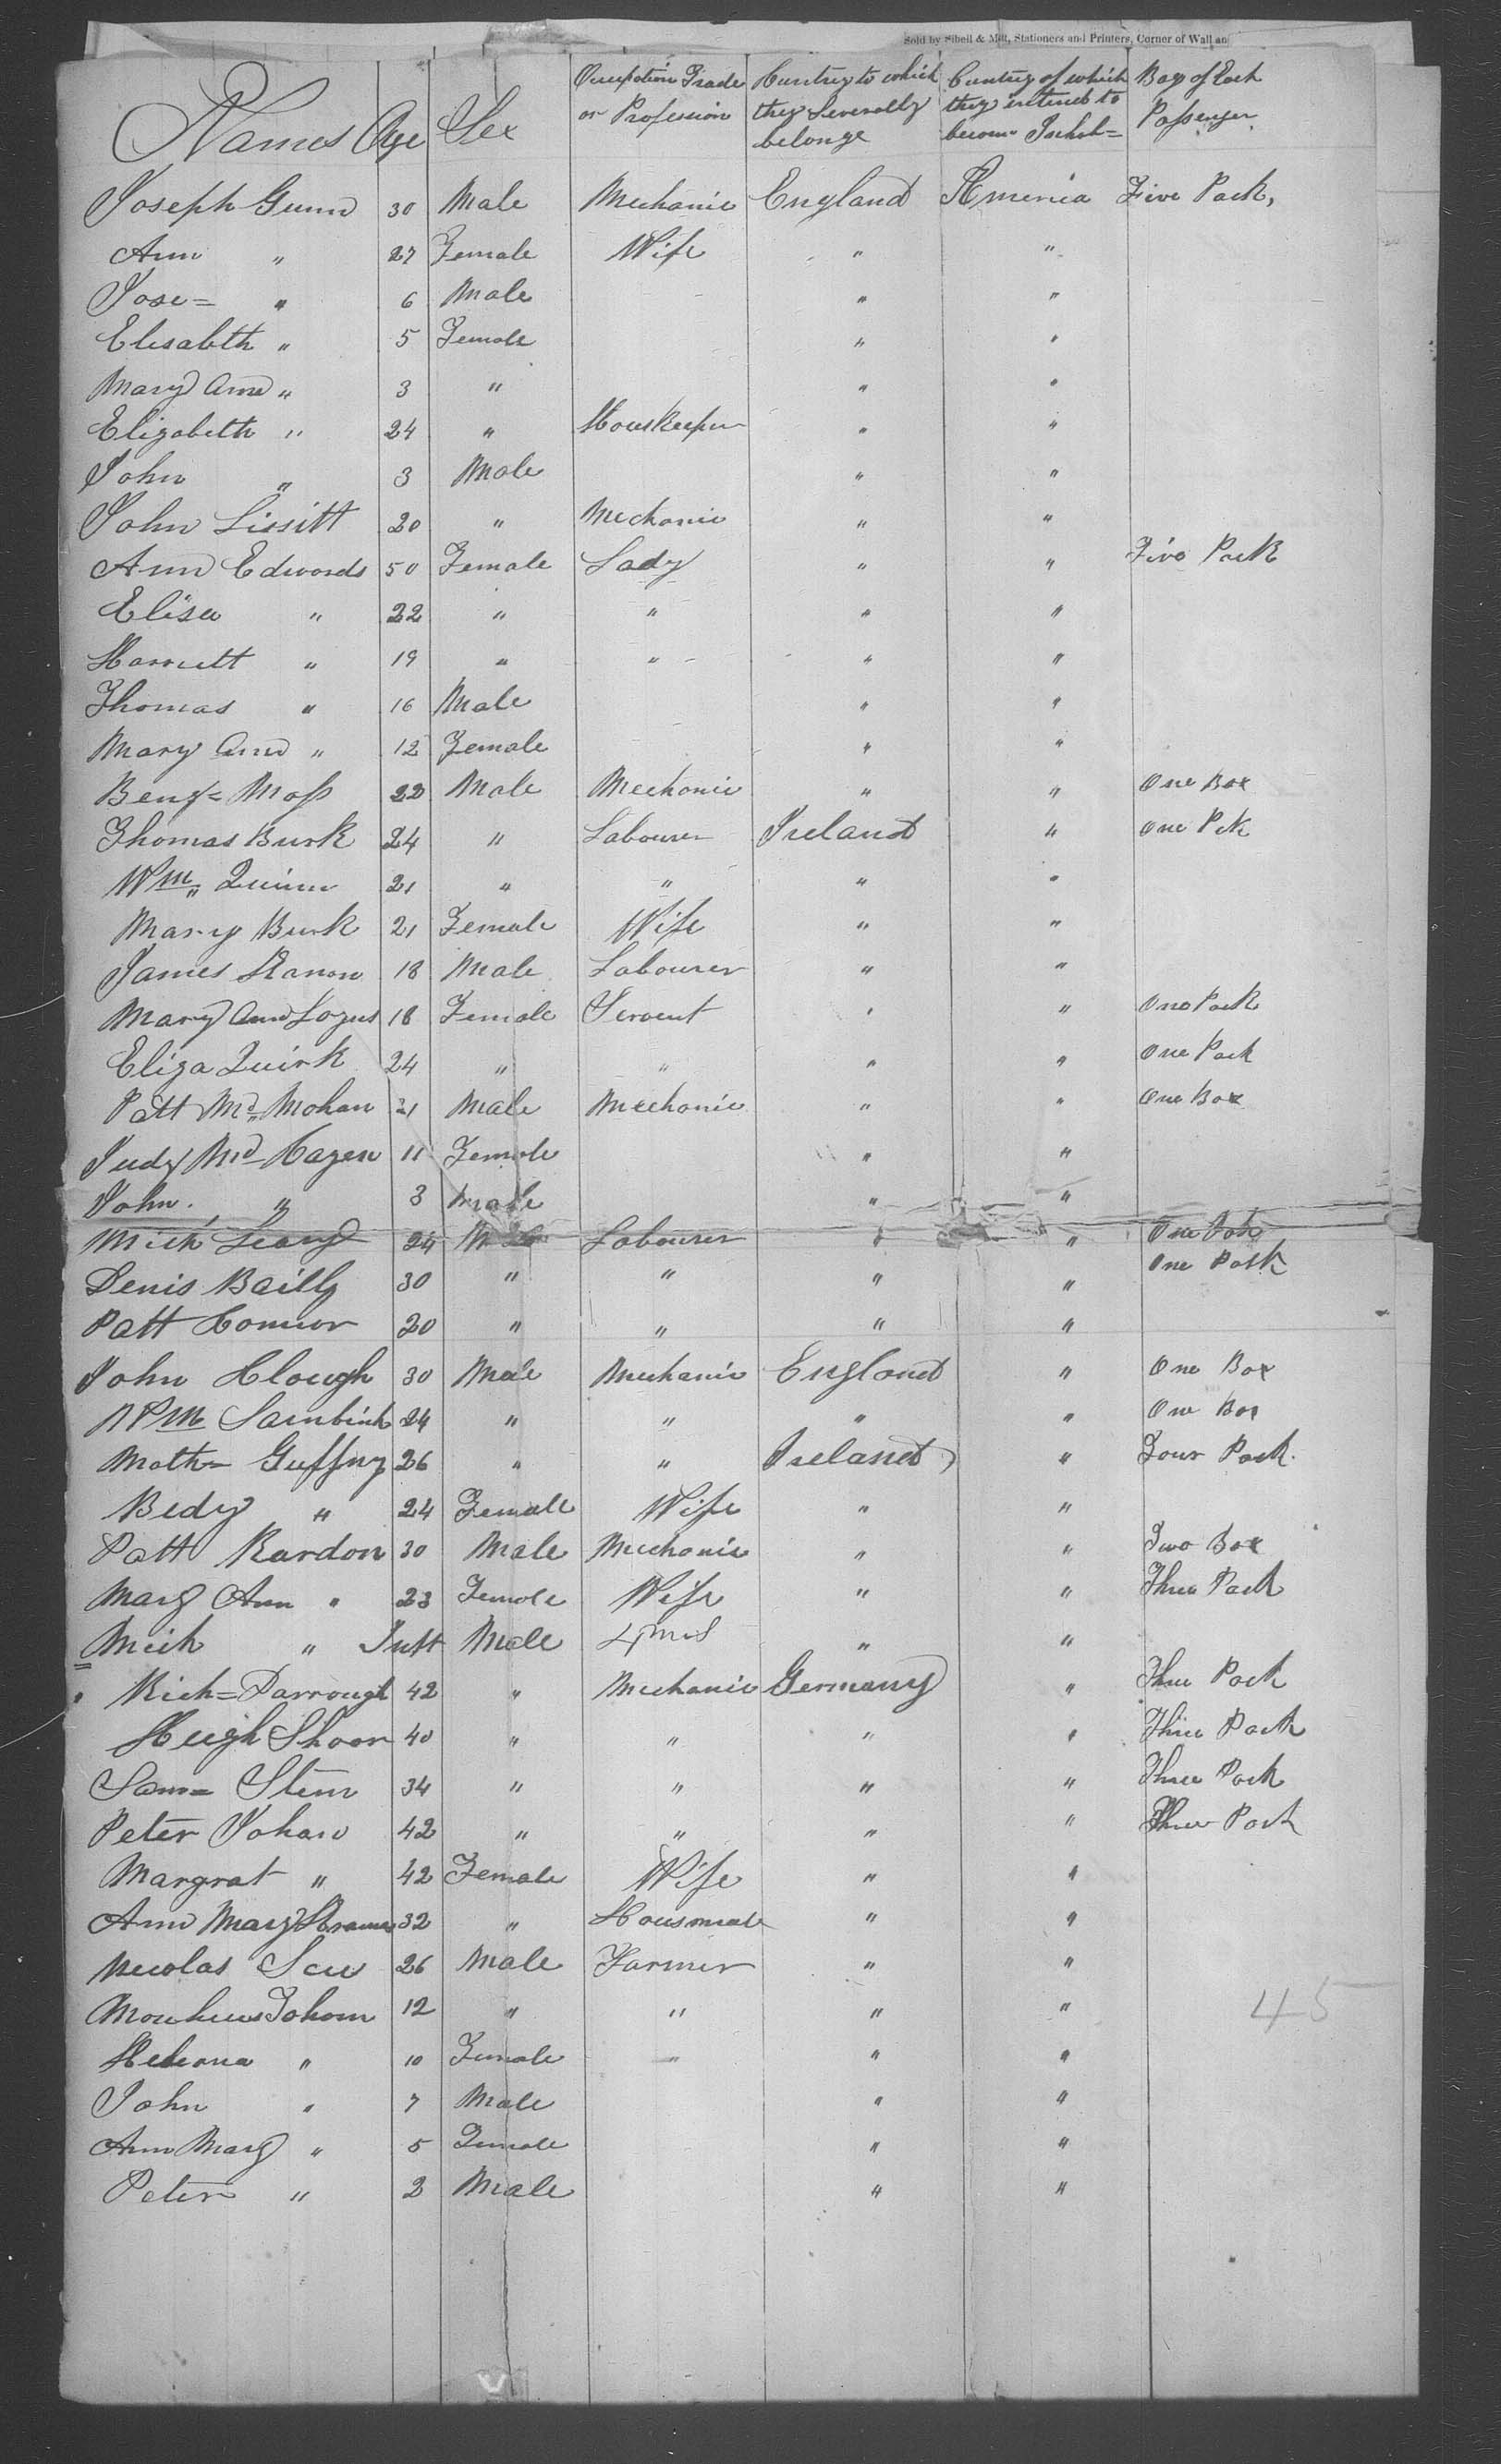 Sold by Sibell & Mott, Stationers and Printers, Corner of Wall and
Names Age Sex Occupation Trade or Profession Cuntry to which they Severally belonge Cuntry of which they intend to become Inhab= Bag of Each Passenger
Joseph Gunn 30 Male Mechanic England America Five Pack,
Ann " 27 Female Wife " "
Jose= " 6 Male " "
Elisabeth " 5 Female " "
Mary Ann " 3 " " "
Elizabeth " 24 " Houskeeper " "
John " 3 Male " "
John Lissitt 20 " Mechanic " "
Ann Edwards 50 Female Lady " " Five Pack
Elisa " 22 " " " "
Harriett " 19 " " " "
Thomas " 16 Male " "
Mary Ann " 12 Female " "
Benj= Moss 22 Male Mechanic " " One Box
Thomas Burk 24 " Labourer Ireland " One Pck
Wm Quinn 21 " " " "
Mary Burk 21 Female Wife " "
James 18 Male Labourer " "
Mary Ann 18 Female Servent " " One Pack
Eliza Quirk 24 " " " " One Pack
Patt Mc Mohan 21 Male Mechanic " " One Box
Judy Mc Cagen 11 Female " "
John " 3 Male " "
Mich Leary 24 Male Labourer " " One Box
Denis Baily 30 " " " " One Pack
Patt Connor 20 " " " "
John Clough 30 Male Mechanic England " One Box
Wm 24 " " " " One Box
Math= Guffny 26 " " Ireland " Four Pack
Bedy " 24 Female Wife " "
Patt Kardon 30 Male Mechanic " " Two Box
Mary Ann " 23 Female Wife " " Three Pack
Mich " Inft Male 4 ms " "
Rich= Darrough 42 " Mechanic Germany " Three Pack
Hugh Shoor 40 " " " " Three Pack
Sam= Stem 34 " " " " Three Pack
Peter Johan 42 " " " " Three Pack
Margrat " 42 Female Wife " "
Ann Mary 32 " Housmade " "
Nicolas 26 Male Farmer " "
Johom 12 " " " "
Heleana " 10 Female " " "
John " 7 Male " "
Ann Mary " 5 Female " "
Peter " 2 Male " "
45